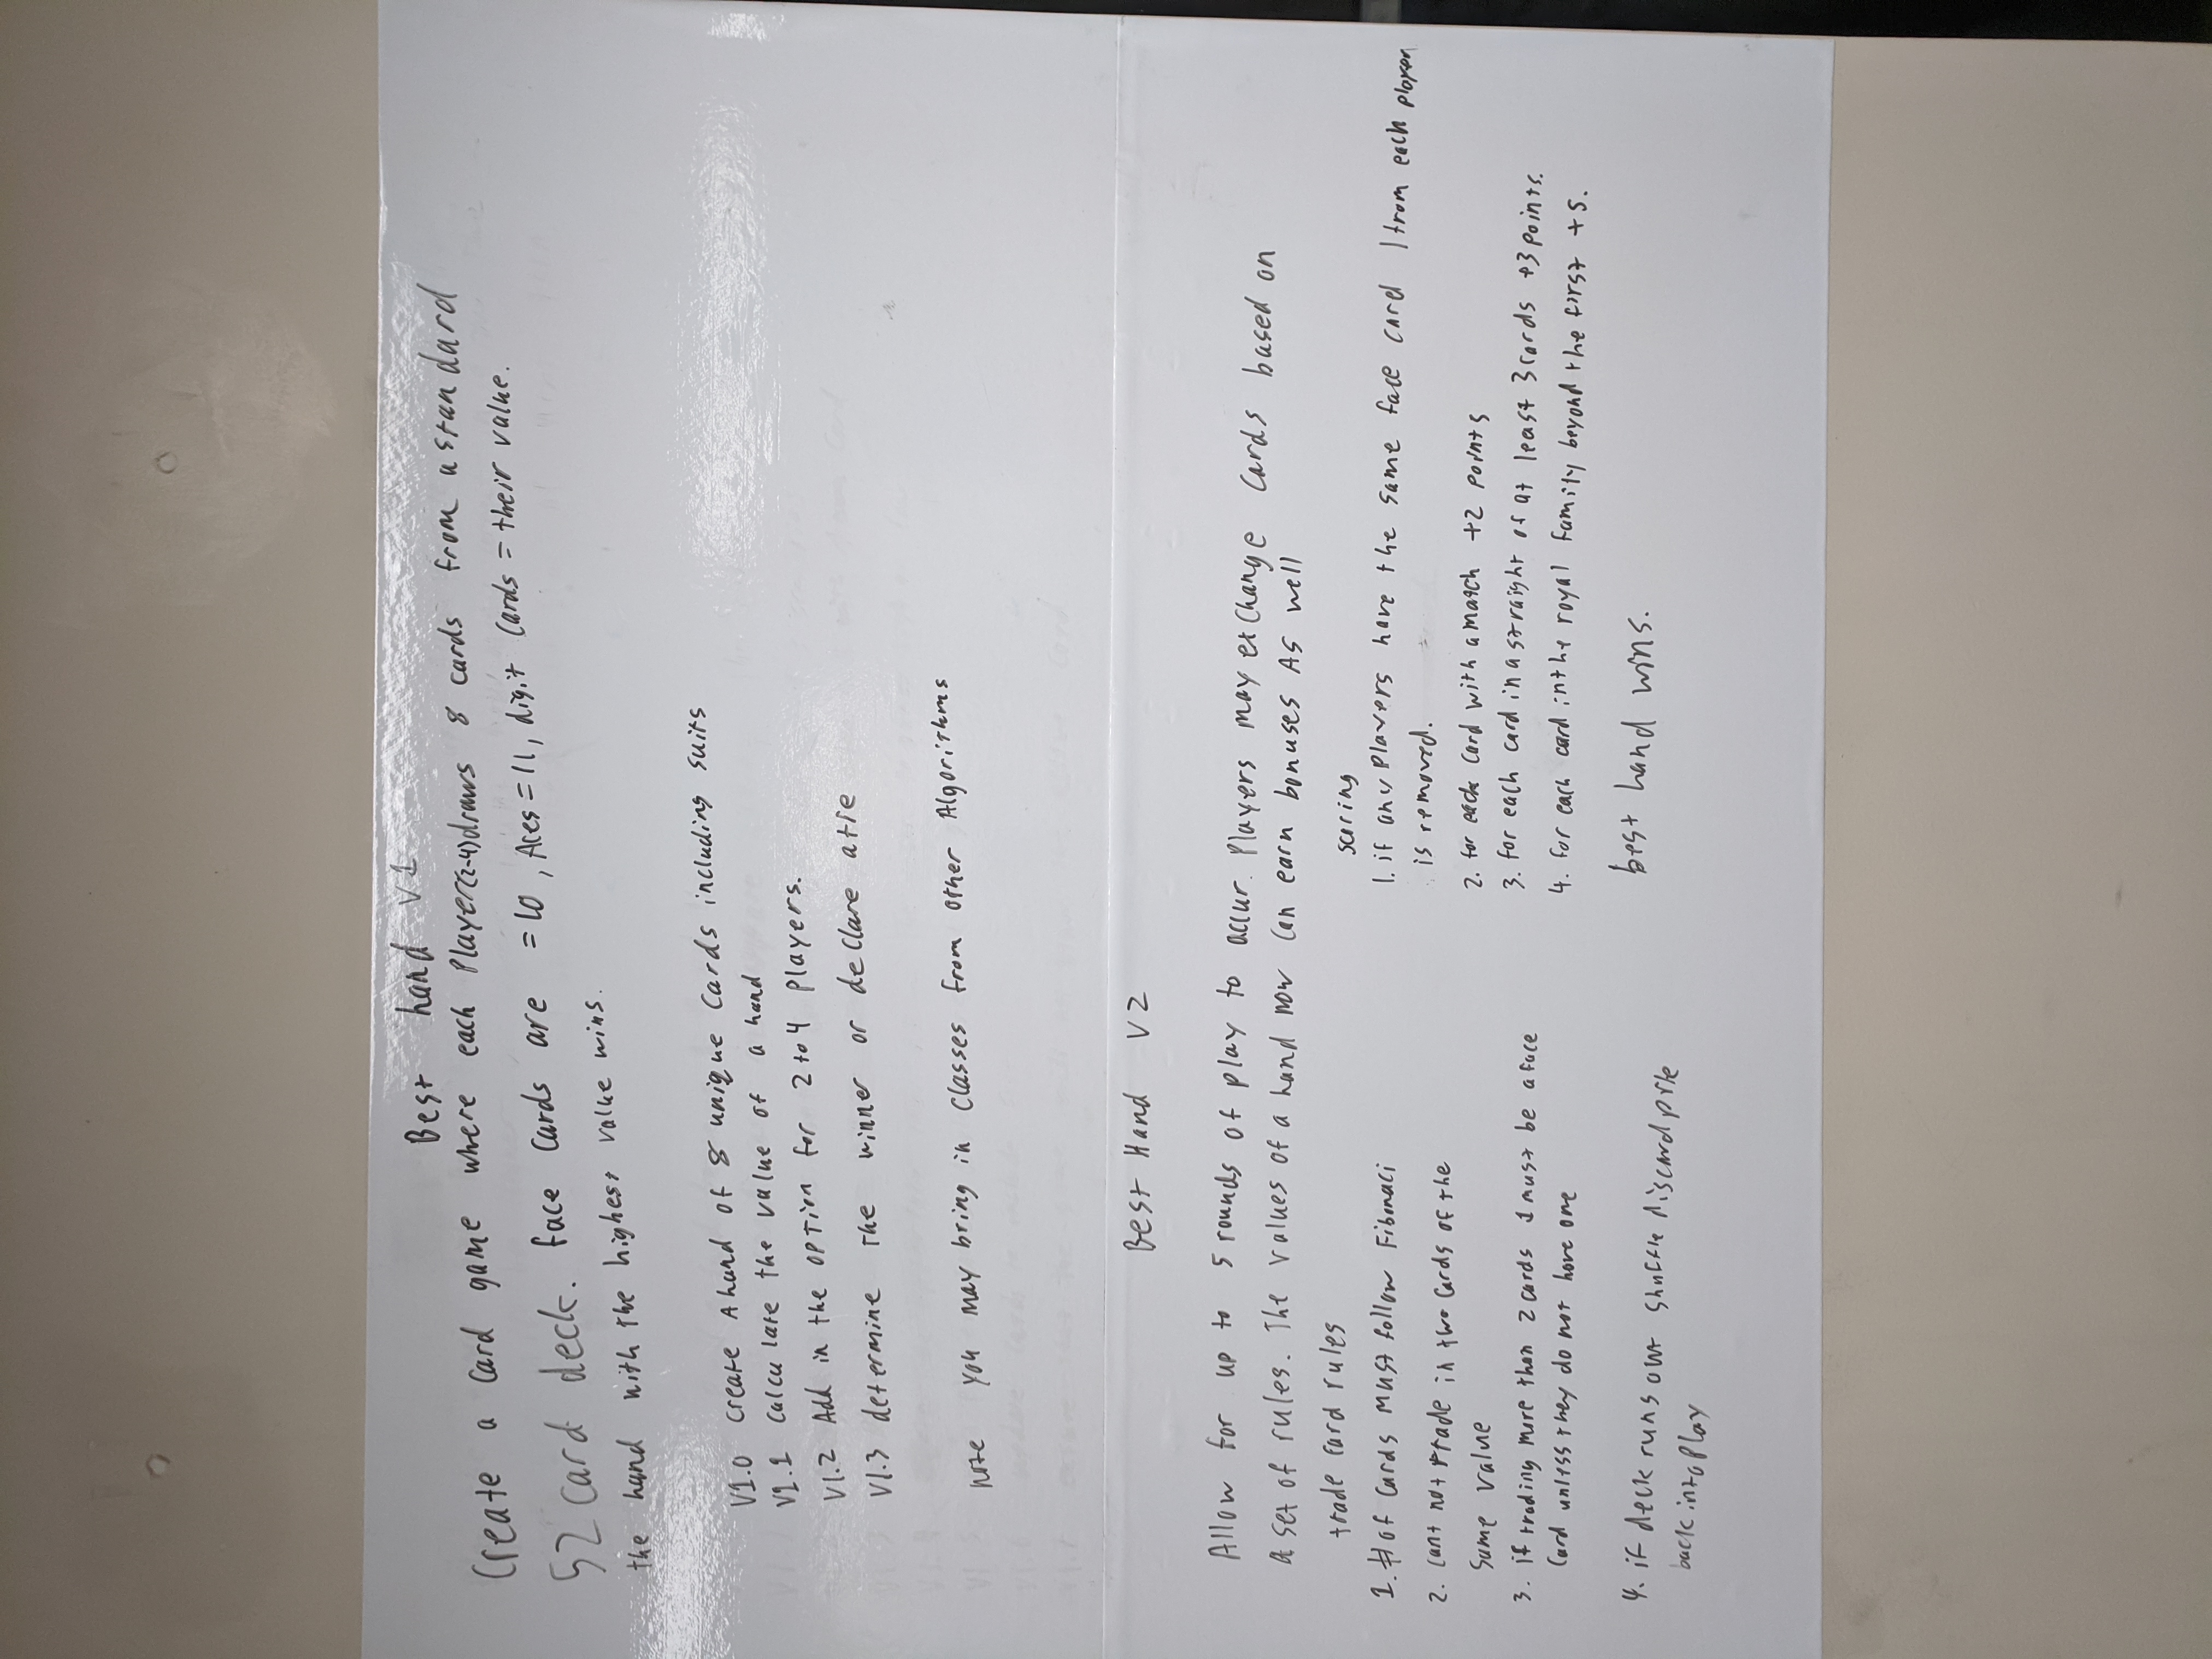 Best hand V1
Create a Card game where each Player(2-4)draws 8 cards from a standard
52 card deck. face Cards are = 10, Aces = 11, digit Cards = their value.
the hand with the highest value wins.
V1.0 Create A hand of 8 unique Cards including suits
V1.1 Calculate the value of a hand
V1.2 Add in the option for 2 to 4 players.
V1.3 determine the winner or declare a tie
note you may bring in Classes from other Algorithms
Best Hand V2
Allow for up to 5 rounds of play to occur. Players may exchange Cards based on
a set of rules. The values of a hand now can earn bonuses As well
trade card rules
1. # of Cards must follow Fibonaci
2. cant not trade in two Cards of the
same value
3. if trading more than 2 cards 1 must be a face
Card unless they do not have one
4. if deck runs out shuffle discard pile
back into Play
scoring
1. if any Players have the same face card 1 from each player
is removed.
2. for each card with a match +2 points
3. for each card in a straight of at least 3 cards +3 points.
4. for each card in the royal family beyond the first +5.
best hand wins.